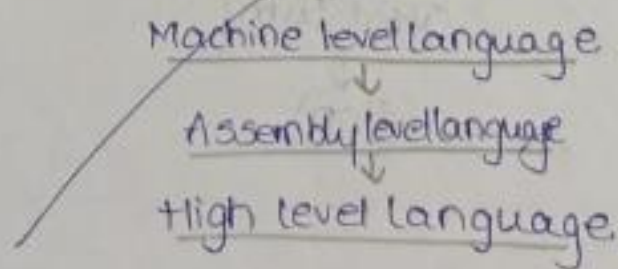 Machine level language
↓
Assembly level language
↓
High level language.